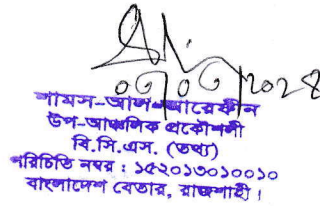 ০৩/০৩/২০২৪
শামস-আল-আরেফীন
উপ-আঞ্চলিক প্রকৌশলী
বি.সি.এস. (তথ্য)
পরিচিতি নম্বর : ১৫২০১৩০১০০১০
বাংলাদেশ বেতার, রাজশাহী।